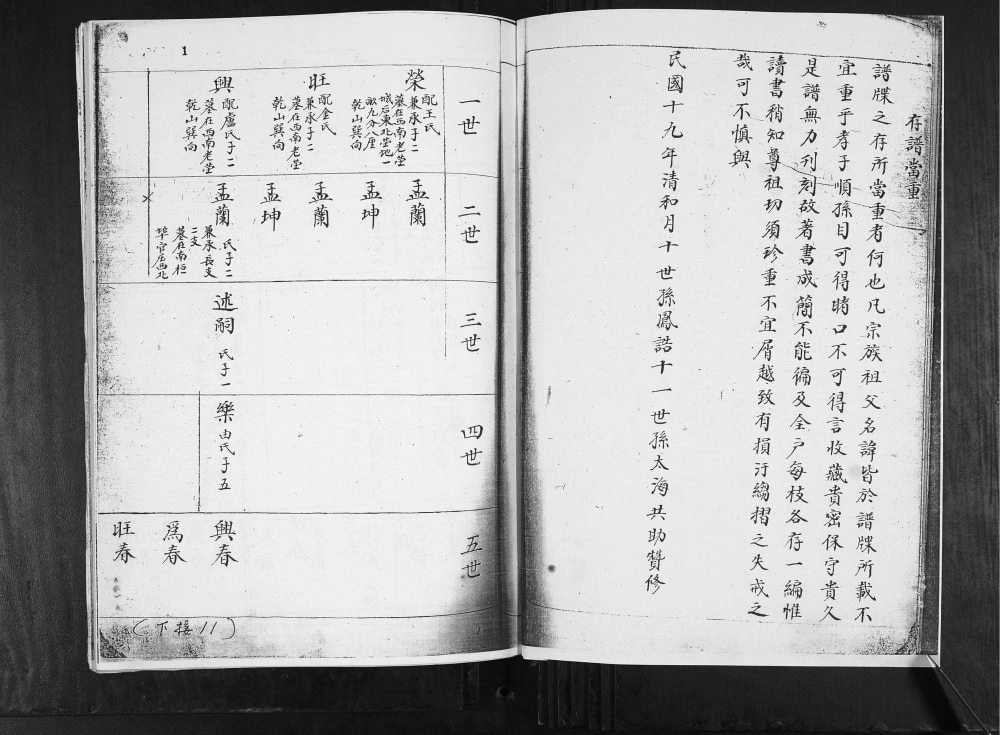 存譜當重
譜牒之存所當重者何也凡宗族祖父名諱皆於譜牒所載不
宜重乎孝子順孫目可得睹口不可得言收藏貴密保守貴久
是譜無力刊刻故著書成簡不能徧及全户每枝各存一編惟
讀書稍知尊祖切須珍重不宜屑越致有損汙縐摺之失戒之
哉可不慎與
民國十九年清和月十世孫鳳誥十一世孫太海共助贊修
1
一世
榮
配王氏
兼承子二
墓在西南老塋
城后東北塋地一
畝九分八厘
乾山巽向
旺
配金氏
兼承子二
墓在西南老塋
乾山巽向
興
配盧氏子二
墓在西南老塋
乾山巽向
二世
孟蘭
孟坤
孟蘭
孟坤
孟蘭
氏子二
兼承長支
二支
墓在南柜
官庄西北
三世
述嗣
氏子一
四世
樂
由氏子五
五世
興春
爲春
旺春
(下接11)